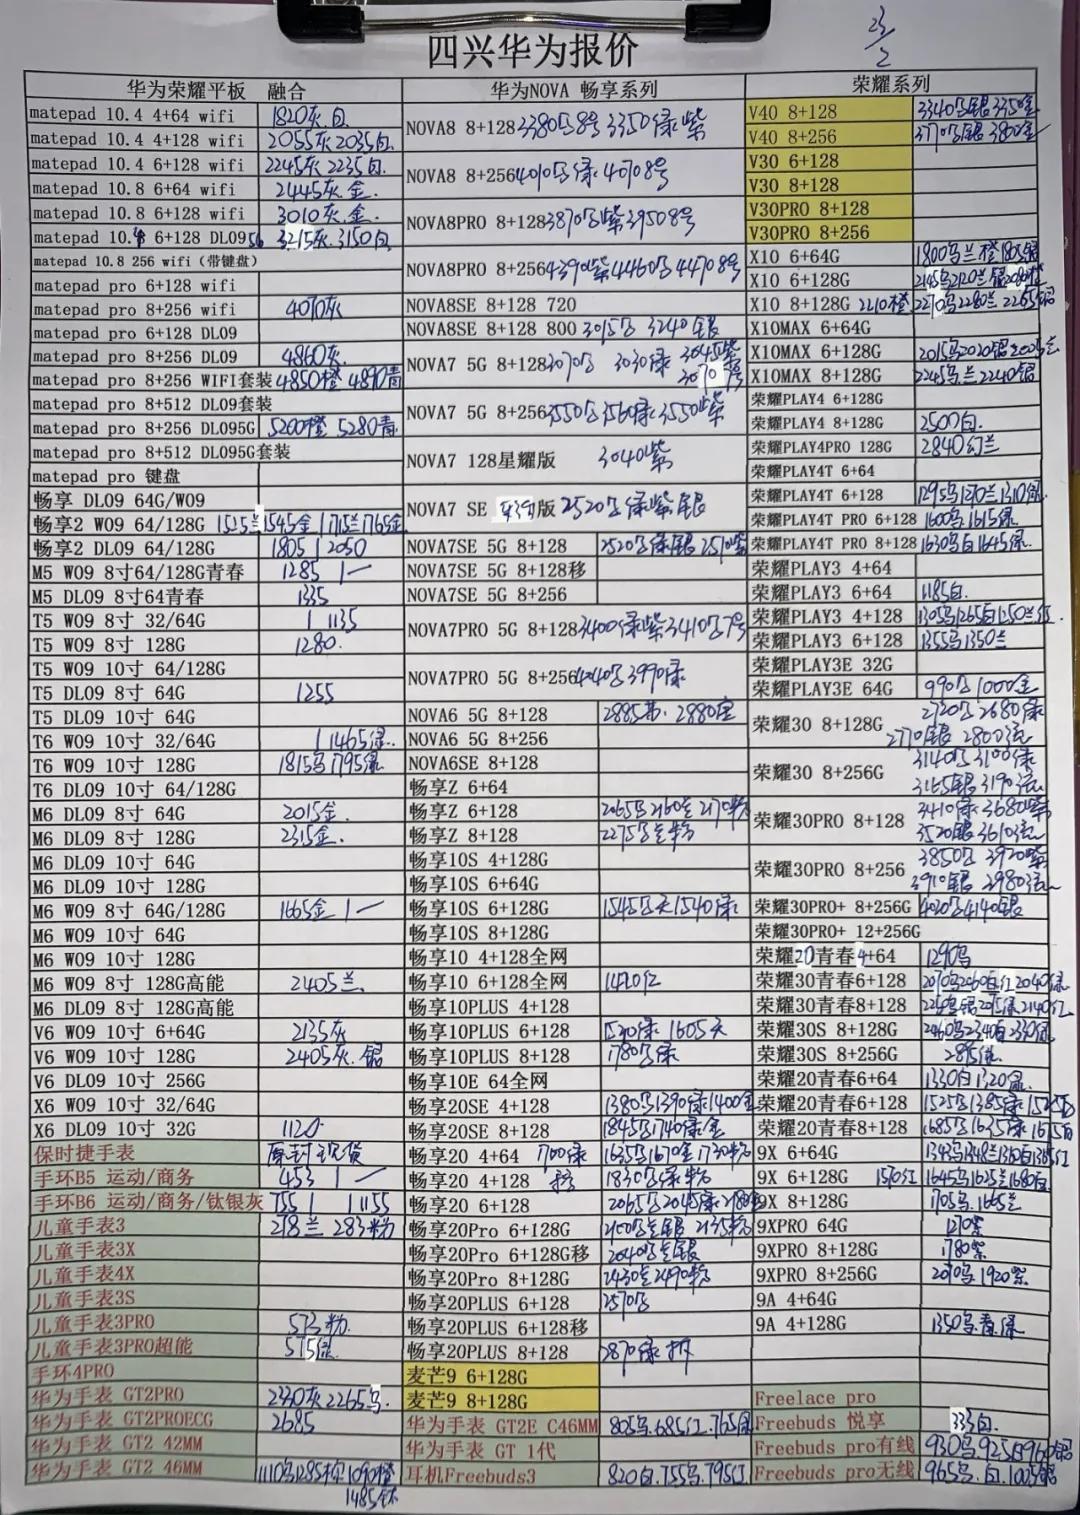 四兴华为报价
23/2
华为荣耀平板 融合
matepad 10.4 4+64 wifi 1820灰.白
matepad 10.4 4+128 wifi 2055灰 2035白.
matepad 10.4 6+128 wifi 2245灰 2235白.
matepad 10.8 6+64 wifi 2445灰.金.
matepad 10.8 6+128 wifi 3010灰.金.
matepad 10. 6+128 DL09 3215灰.3150白
matepad 10.8 256 wifi（带键盘）
matepad pro 6+128 wifi
matepad pro 8+256 wifi 4070灰
matepad pro 6+128 DL09
matepad pro 8+256 DL09 4860灰
matepad pro 8+256 WIFI套装 4850橙 4890青
matepad pro 8+512 DL09套装
matepad pro 8+256 DL095G 5200橙 5280青
matepad pro 8+512 DL095G套装
matepad pro 键盘
畅享 DL09 64G/W09
畅享2 W09 64/128G 1515兰1545金 1715兰1765金
畅享2 DL09 64/128G 1805 | 2050
M5 W09 8寸64/128G青春 1285 | 一
M5 DL09 8寸64青春 1335
T5 W09 8寸 32/64G | 1135
T5 W09 8寸 128G 1280.
T5 W09 10寸 64/128G
T5 DL09 8寸 64G 1255
T5 DL09 10寸 64G
T6 W09 10寸 32/64G | 1465绿.
T6 W09 10寸 128G 1815乌1795绿
T6 DL09 10寸 64/128G
M6 DL09 8寸 64G 2015金.
M6 DL09 8寸 128G 2315金.
M6 DL09 10寸 64G
M6 DL09 10寸 128G
M6 W09 8寸 64G/128G 1665金 | 一
M6 W09 10寸 64G
M6 W09 10寸 128G
M6 W09 8寸 128G高能 2405兰.
M6 DL09 8寸 128G高能
V6 W09 10寸 6+64G 2135灰
V6 W09 10寸 128G 2405灰.银
V6 DL09 10寸 256G
X6 W09 10寸 32/64G
X6 DL09 10寸 32G 1120.
保时捷手表 原封 现货
手环B5 运动/商务 453 | 一
手环B6 运动/商务/钛银灰 755 | | 1155
儿童手表3 278兰 283粉
儿童手表3X
儿童手表4X
儿童手表3S
儿童手表3PRO 573粉.
儿童手表3PRO超能 575
手环4PRO
华为手表 GT2PRO 2240灰 2265乌.
华为手表 GT2PROECG 2685
华为手表 GT2 42MM
华为手表 GT2 46MM 1110乌1285棕1090橙
1485钛
华为NOVA 畅享系列
NOVA8 8+128 3380乌8号 3350绿紫
NOVA8 8+256 4010乌绿 40708号
NOVA8PRO 8+128 3870乌紫 39508号
NOVA8PRO 8+256 4390紫4460乌44708号
NOVA8SE 8+128 720
NOVA8SE 8+128 800 3015乌 3240银
NOVA7 5G 8+128 3070乌 3030绿 3045紫
3070
NOVA7 5G 8+256 3550乌3560绿.3550紫
NOVA7 128星耀版 3040紫
NOVA7 SE 版 2520乌绿紫银
NOVA7SE 5G 8+128 2520乌绿银 2510紫
NOVA7SE 5G 8+128移
NOVA7SE 5G 8+256
NOVA7PRO 5G 8+128 3400绿紫3410乌7号
NOVA7PRO 5G 8+256 4040乌3990绿
NOVA6 5G 8+128 2885 2880
NOVA6 5G 8+256
NOVA6SE 8+128
畅享Z 6+64
畅享Z 6+128 2065乌2160兰2170粉
畅享Z 8+128 2275乌兰粉
畅享10S 4+128G
畅享10S 6+64G
畅享10S 6+128G 1545乌天1540绿
畅享10S 8+128G
畅享10 4+128全网
畅享10 6+128全网 1420红
畅享10PLUS 4+128
畅享10PLUS 6+128 1520绿 1605天
畅享10PLUS 8+128 1780乌绿
畅享10E 64全网
畅享20SE 4+128 1380乌1390绿1400金
畅享20SE 8+128 1845乌1740绿金
畅享20 4+64 1700绿 1635乌1670金1730粉
畅享20 4+128 粉 1830乌绿金
畅享20 6+128 2065乌2045绿
畅享20Pro 6+128G 2100乌兰银 2135粉
畅享20Pro 6+128G移 2040乌兰银
畅享20Pro 8+128G 2430兰2490粉
畅享20PLUS 6+128 2570乌
畅享20PLUS 6+128移
畅享20PLUS 8+128 2870绿
麦芒9 6+128G
麦芒9 8+128G
华为手表 GT2E C46MM 805乌.685红.765绿
华为手表 GT 1代
耳机Freebuds3 820白.755乌.795红
荣耀系列
V40 8+128 3340乌银 3350金
V40 8+256 3770乌银 3800金
V30 6+128
V30 8+128
V30PRO 8+128
V30PRO 8+256
X10 6+64G 1800乌兰橙1805银
X10 6+128G 2145乌2120兰银2080橙
X10 8+128G 2210橙 2270乌2280兰2265银
X10MAX 6+64G
X10MAX 6+128G 2015乌2020银2005兰
X10MAX 8+128G 2245乌.兰2240银
荣耀PLAY4 6+128G
荣耀PLAY4 8+128G 2500白.
荣耀PLAY4PRO 128G 2840幻兰
荣耀PLAY4T 6+64
荣耀PLAY4T 6+128 1295乌1270兰1310绿
荣耀PLAY4T PRO 6+128 1600乌1615绿
荣耀PLAY4T PRO 8+128 1630乌白1645绿.
荣耀PLAY3 4+64
荣耀PLAY3 6+64 1185白.
荣耀PLAY3 4+128 1305乌1265白1250兰红.
荣耀PLAY3 6+128 1355乌1350兰
荣耀PLAY3E 32G
荣耀PLAY3E 64G 990乌1000金
荣耀30 8+128G 2720乌 2680绿
2770银 2800流
荣耀30 8+256G 3140乌3100绿
3165银3190流
荣耀30PRO 8+128 3410绿 3680紫
3520银 3610流
荣耀30PRO 8+256 3850乌 3920紫
3910银 3980流
荣耀30PRO+ 8+256G 4020乌4140银
荣耀30PRO+ 12+256G
荣耀20青春4+64 1290乌
荣耀30青春6+128 2070乌2060白.红2040绿
荣耀30青春8+128
荣耀30S 8+128G 2460乌2340白2330绿
荣耀30S 8+256G 2895
荣耀20青春6+64 1330白1320蓝.
荣耀20青春6+128 1525乌1385绿
荣耀20青春8+128 1685乌1635绿
9X 6+64G
9X 6+128G 1570红 1645乌1625兰1680白.
9X 8+128G 1705乌.1665兰
9XPRO 64G 1270紫
9XPRO 8+128G 1780紫
9XPRO 8+256G 2070乌1920紫
9A 4+64G
9A 4+128G 1350乌.青.绿
Freelace pro
Freebuds 悦享 333白.
Freebuds pro有线 930乌.925白960银
Freebuds pro无线 965乌.白.1005银